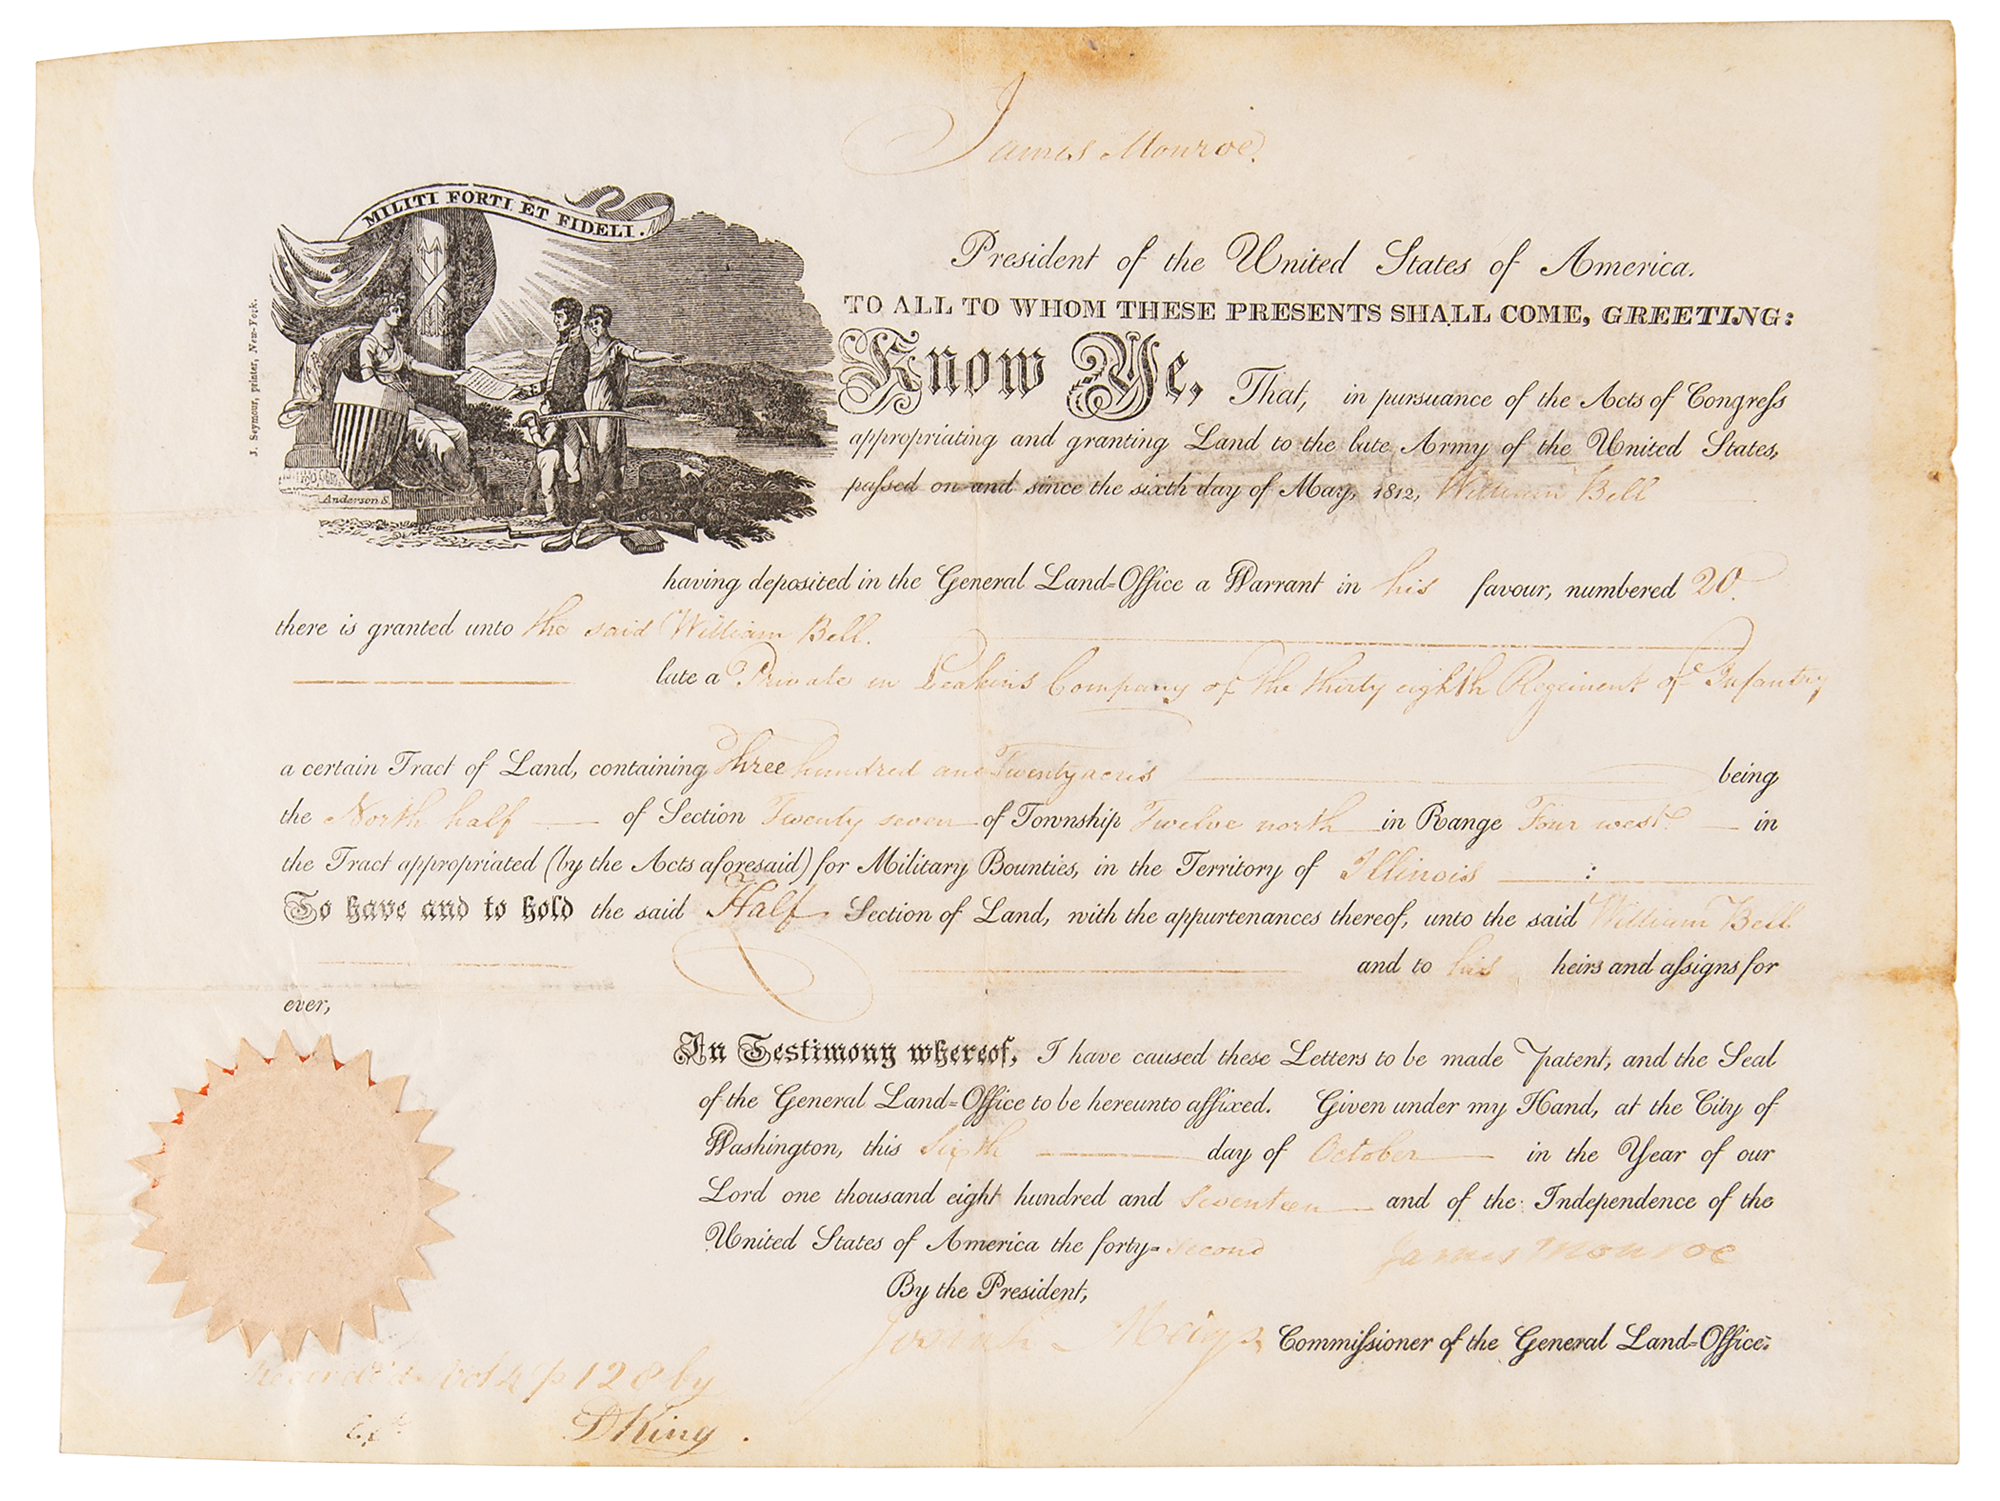 James Monroe,
MILITI FORTI ET FIDELI.
J. Seymour, printer, New-York.
Anderson S.
President of the United States of America.
TO ALL TO WHOM THESE PRESENTS SHALL COME, GREETING:
Know Ye, That, in pursuance of the Acts of Congreſs
appropriating and granting Land to the late Army of the United States,
paſsed on and since the sixth day of May, 1812, William Bell
having deposited in the General Land=Office a Warrant in his favour, numbered 20.
there is granted unto the said William Bell.
late a Private in Leakins Company of the thirty eighth Regiment of Infantry
a certain Tract of Land, containing Three hundred and Twenty acres being
the North half of Section Twenty seven of Township Twelve north in Range Four west in
the Tract appropriated (by the Acts aforesaid) for Military Bounties, in the Territory of Illinois :
To have and to hold the said Half Section of Land, with the appurtenances thereof, unto the said William Bell
and to his heirs and aſsigns for
ever,
In Testimony whereof, I have caused these Letters to be made Patent, and the Seal
of the General Land=Office to be hereunto affixed. Given under my Hand, at the City of
Washington, this Sixth day of October in the Year of our
Lord one thousand eight hundred and Seventeen and of the Independence of the
United States of America the forty=second
James Monroe
By the President,
Josiah Meigs, Commiſsioner of the General Land=Office.
Recorded Vol 4 p 128 by
D King.